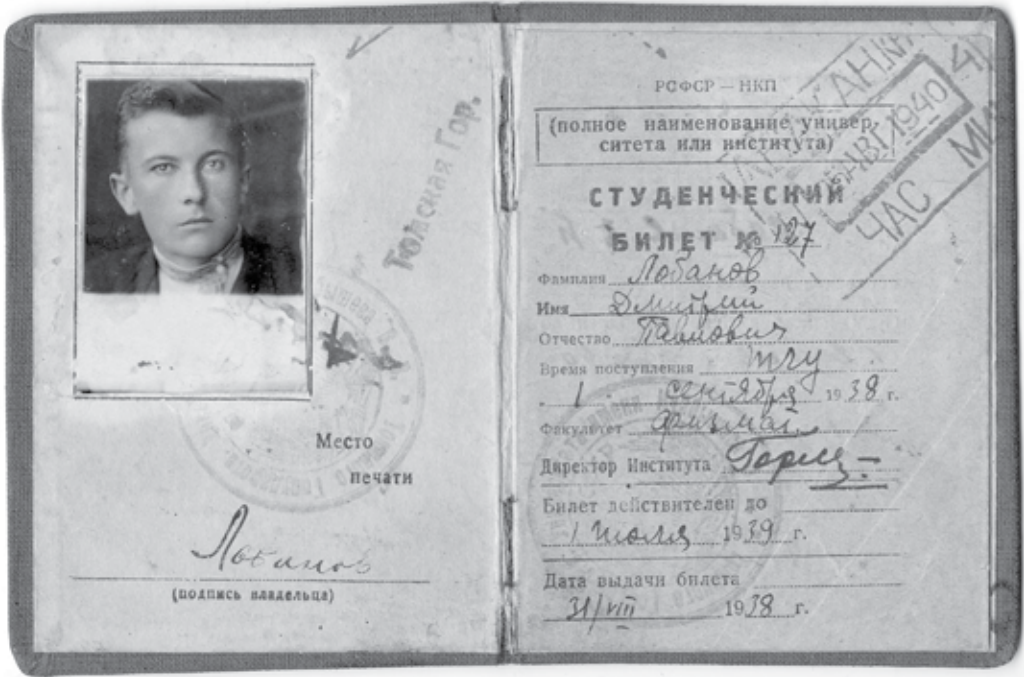 Томская Гор.
Место
печати
Лобанов
(подпись владельца)
РСФСР — НКП
(полное наименование универ-
ситета или института)
СТУДЕНЧЕСКИЙ
БИЛЕТ № 127
Фамилия Лобанов
Имя Дмитрий
Отчество Павлович
Время поступления ТГУ
1 сентября 1938 г.
Факультет Физмат
Директор Института
Билет действителен до
1 июля 1939 г.
Дата выдачи билета
31/VIII 1938 г.
АВГ. 1940
ЧАС